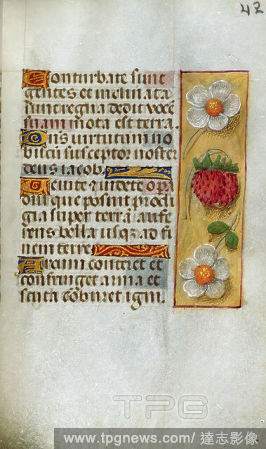 42
Conturbate sunt
gentes et inclinata
sunt regna dedit vocē
suam mota est terra.
Dns virtutum no
biscū susceptor noster
deus iacob.
Venite et videte opa
dni que posuit prodi
gia super terrā aufe
rens bella usqz ad fi
nem terre
Arcum conteret et
confringet arma et
scuta cōburet igni.
TPG
www.tpgnews.com / 達志影像